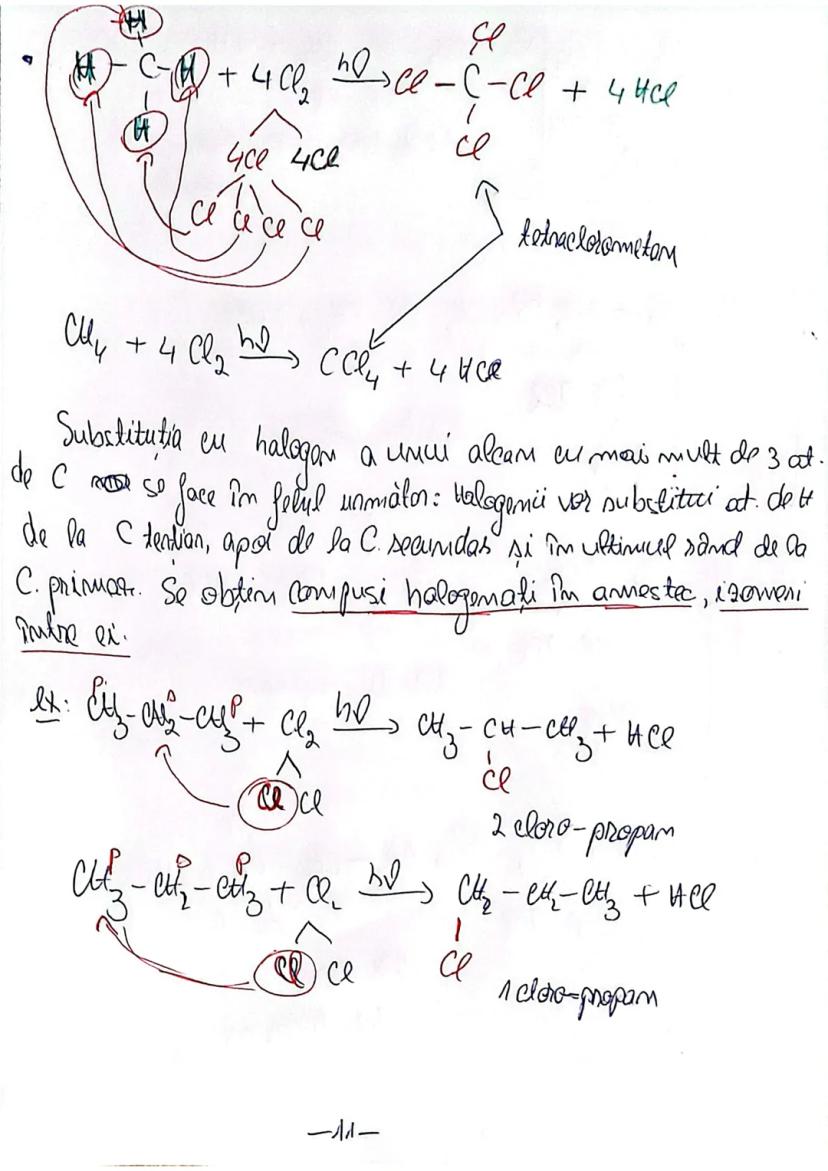 H
H - C - H + 4Cl₂ hν→ Cl - C - Cl + 4HCl
H
Cl
Cl
4Cl 4Cl
Cl Cl Cl Cl
tetraclorometan
CH₄ + 4Cl₂ hν→ CCl₄ + 4HCl
Substituția cu halogen a unui alcan cu mai mult de 3 at.
de C se face în felul următor: Halogenii vor substitui at. de H
de la C terțiar, apoi de la C. secundar și în ultimul rând de la
C. primar. Se obțin compuși halogenați în amestec, izomeri
între ei.
ex: CH₃-CH₂-CH₃ + Cl₂ hν→ CH₃-CH-CH₃ + HCl
Cl Cl
Cl
2 cloro-propan
CH₃-CH₂-CH₃ + Cl₂ hν→ CH₂-CH₂-CH₃ + HCl
Cl Cl
Cl
1 cloro-propan
-11-